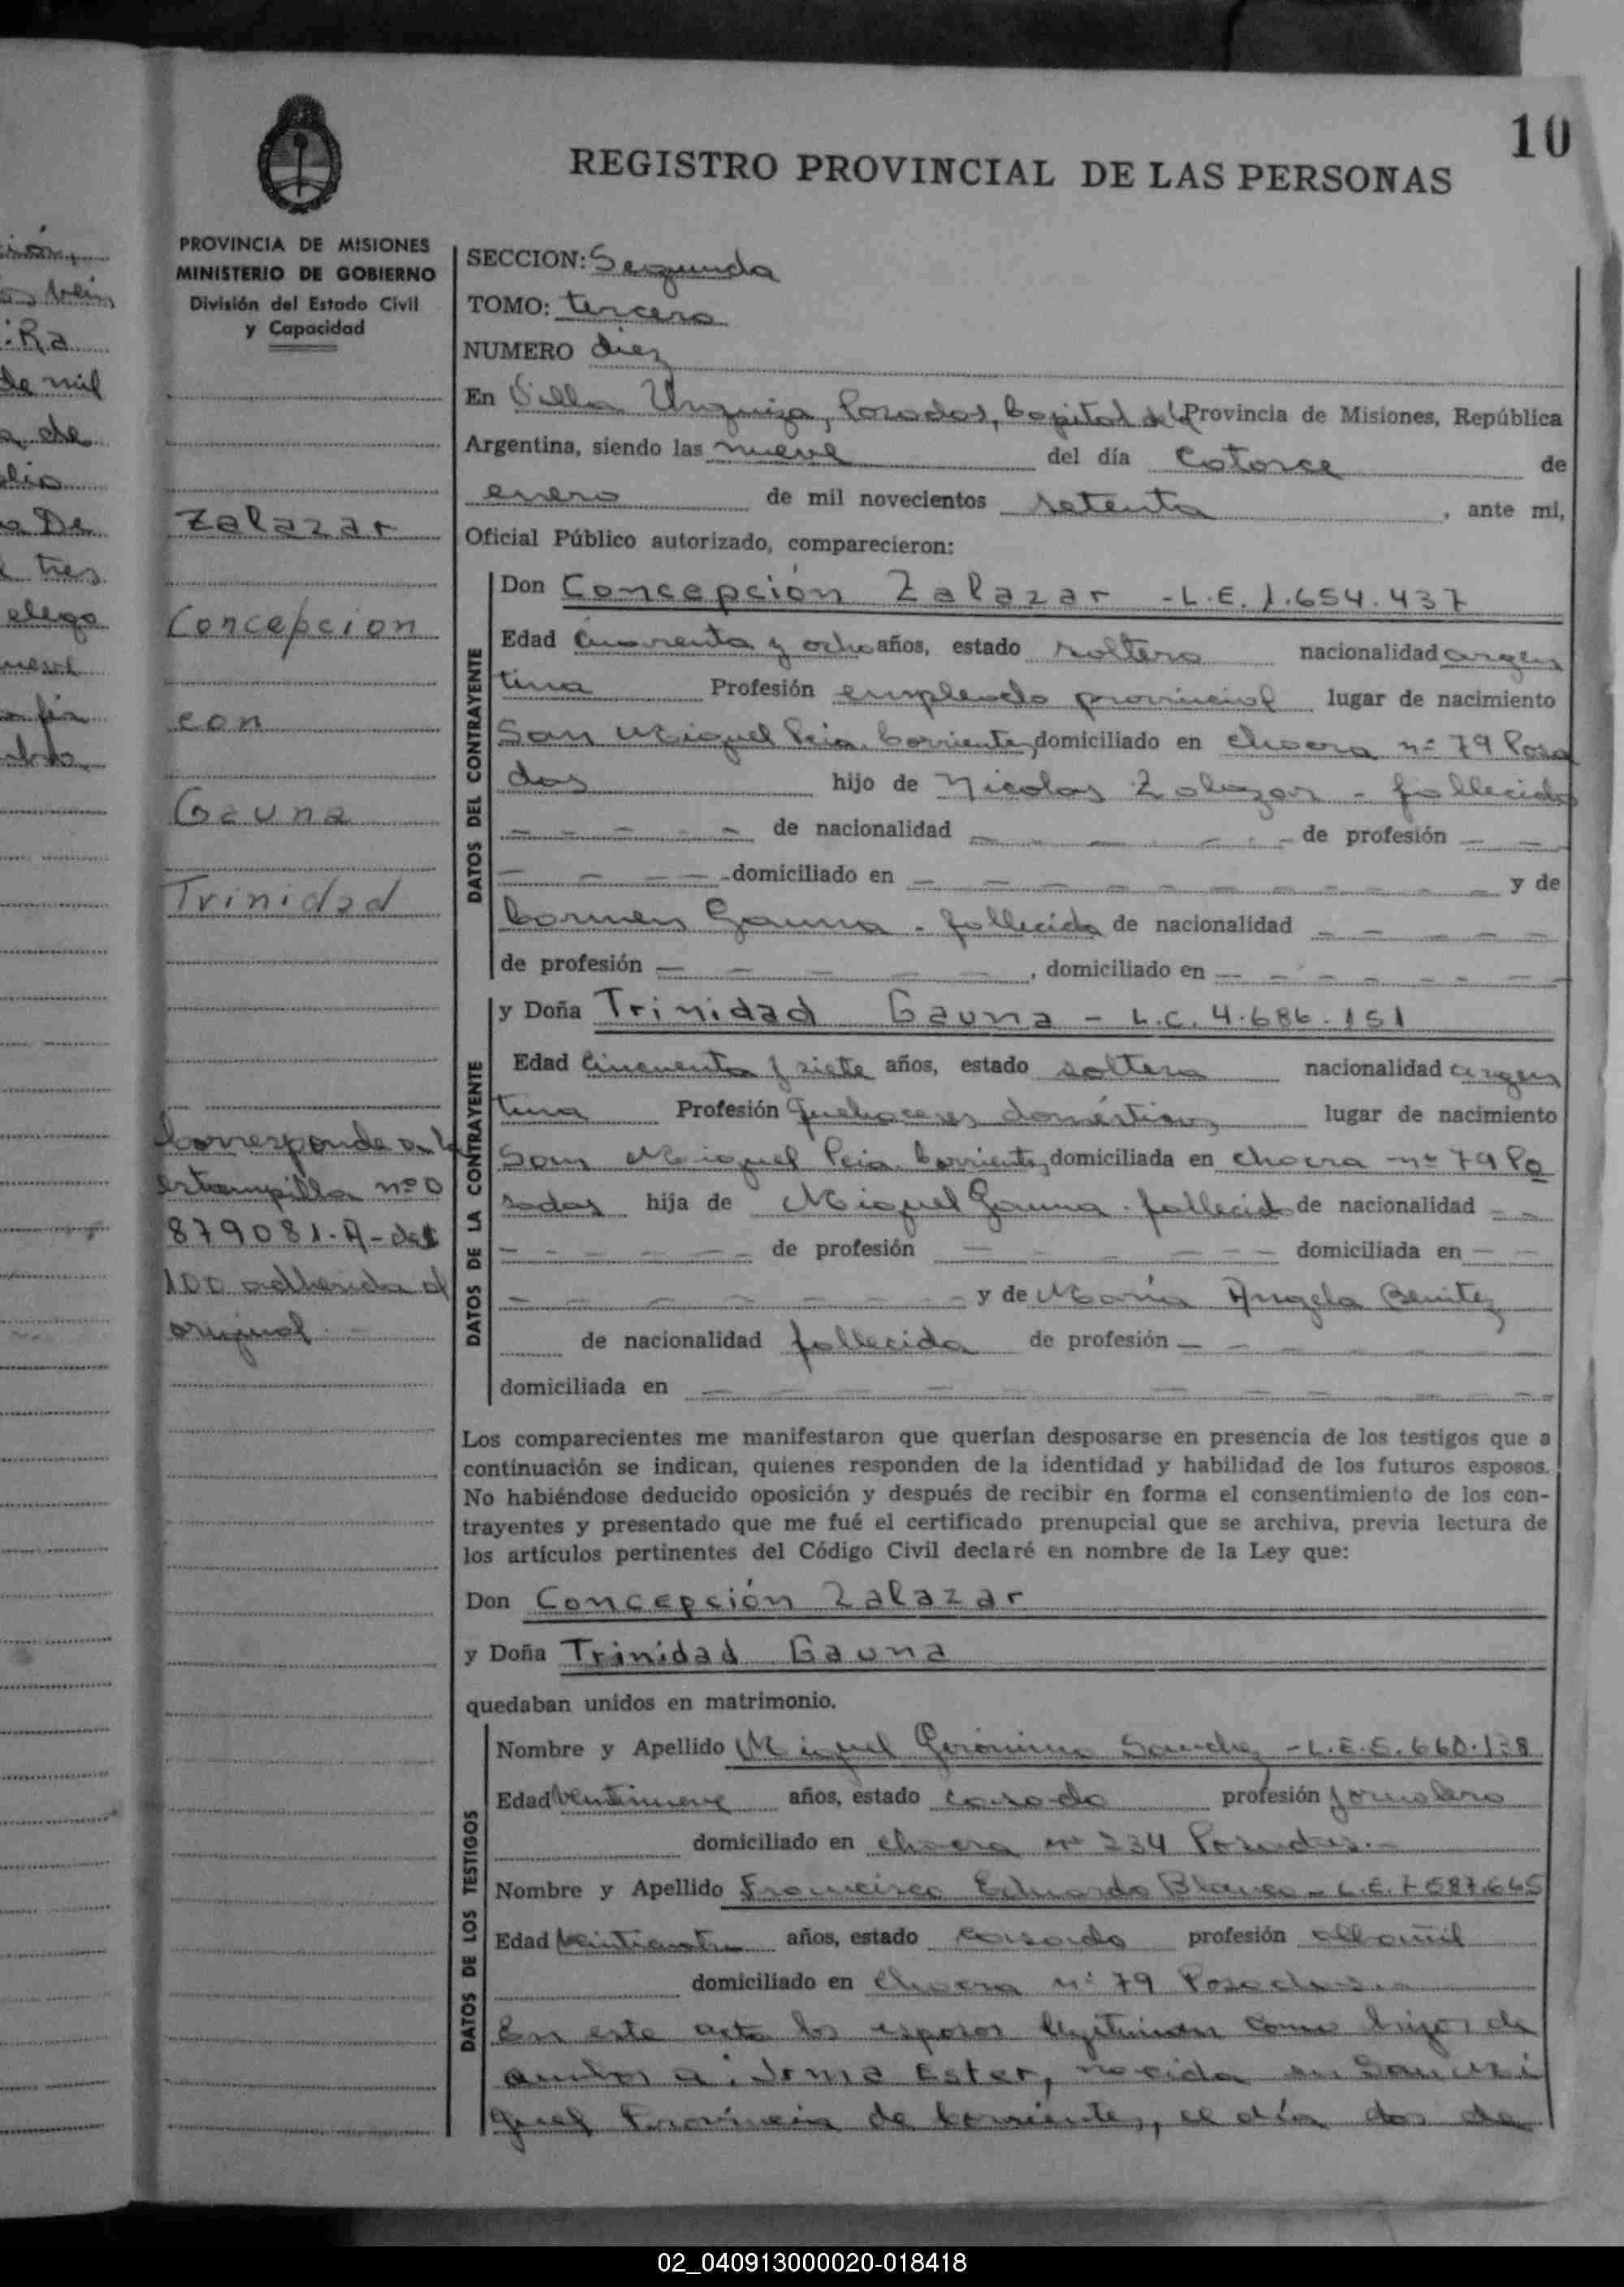 10
REGISTRO PROVINCIAL DE LAS PERSONAS
PROVINCIA DE MISIONES
MINISTERIO DE GOBIERNO
División del Estado Civil
y Capacidad
Zalazar
Concepcion
con
Gauna
Trinidad
Corresponde a la
estampilla nº 0
879081-A- de $
100 adherida al
original.-
SECCION: Segunda
TOMO: tercero
NUMERO diez
En Villa Urquiza, Posadas, Capital de la Provincia de Misiones, República
Argentina, siendo las nueve del día catorce de
enero de mil novecientos setenta, ante mi,
Oficial Público autorizado, comparecieron:
DATOS DEL CONTRAYENTE
Don Concepción Zalazar - L.E. 1.654.437
Edad Cuarenta y ocho años, estado soltero nacionalidad argen
tina Profesión empleado provincial lugar de nacimiento
San Miguel Pcia. Corrientes, domiciliado en chacra nº 79 Posa
das hijo de Nicolas Zalazar - fallecido
de nacionalidad de profesión
domiciliado en y de
Carmen Gauna - fallecida de nacionalidad
de profesión , domiciliado en
DATOS DE LA CONTRAYENTE
y Doña Trinidad Gauna - L.C. 4.686.151
Edad Cincuenta y siete años, estado soltera nacionalidad argen
tina Profesión Quehaceres domésticos, lugar de nacimiento
San Miguel Pcia. Corrientes, domiciliada en chacra nº 79 Po
sadas hija de Miguel Gauna - fallecido de nacionalidad
de profesión domiciliada en
y de María Angela Benitez
de nacionalidad fallecida de profesión
domiciliada en
Los comparecientes me manifestaron que querían desposarse en presencia de los testigos que a
continuación se indican, quienes responden de la identidad y habilidad de los futuros esposos.
No habiéndose deducido oposición y después de recibir en forma el consentimiento de los con-
trayentes y presentado que me fué el certificado prenupcial que se archiva, previa lectura de
los artículos pertinentes del Código Civil declaré en nombre de la Ley que:
Don Concepción Zalazar
y Doña Trinidad Gauna
quedaban unidos en matrimonio.
DATOS DE LOS TESTIGOS
Nombre y Apellido Miguel Gerónimo Sanchez - L.E. 5.660.138
Edad Veintinueve años, estado casado profesión jornalero
domiciliado en chacra nº 234 Posadas.-
Nombre y Apellido Francisco Eduardo Blanco - L.E. 7.587.665
Edad Veinticuatro años, estado casado profesión albañil
domiciliado en Chacra nº 79 Posadas.-
En este acto los esposos legitiman como hijos de
ambos a: Irma Ester, nacida en San Mi
guel Provincia de Corrientes, el día dos de
02_040913000020-018418